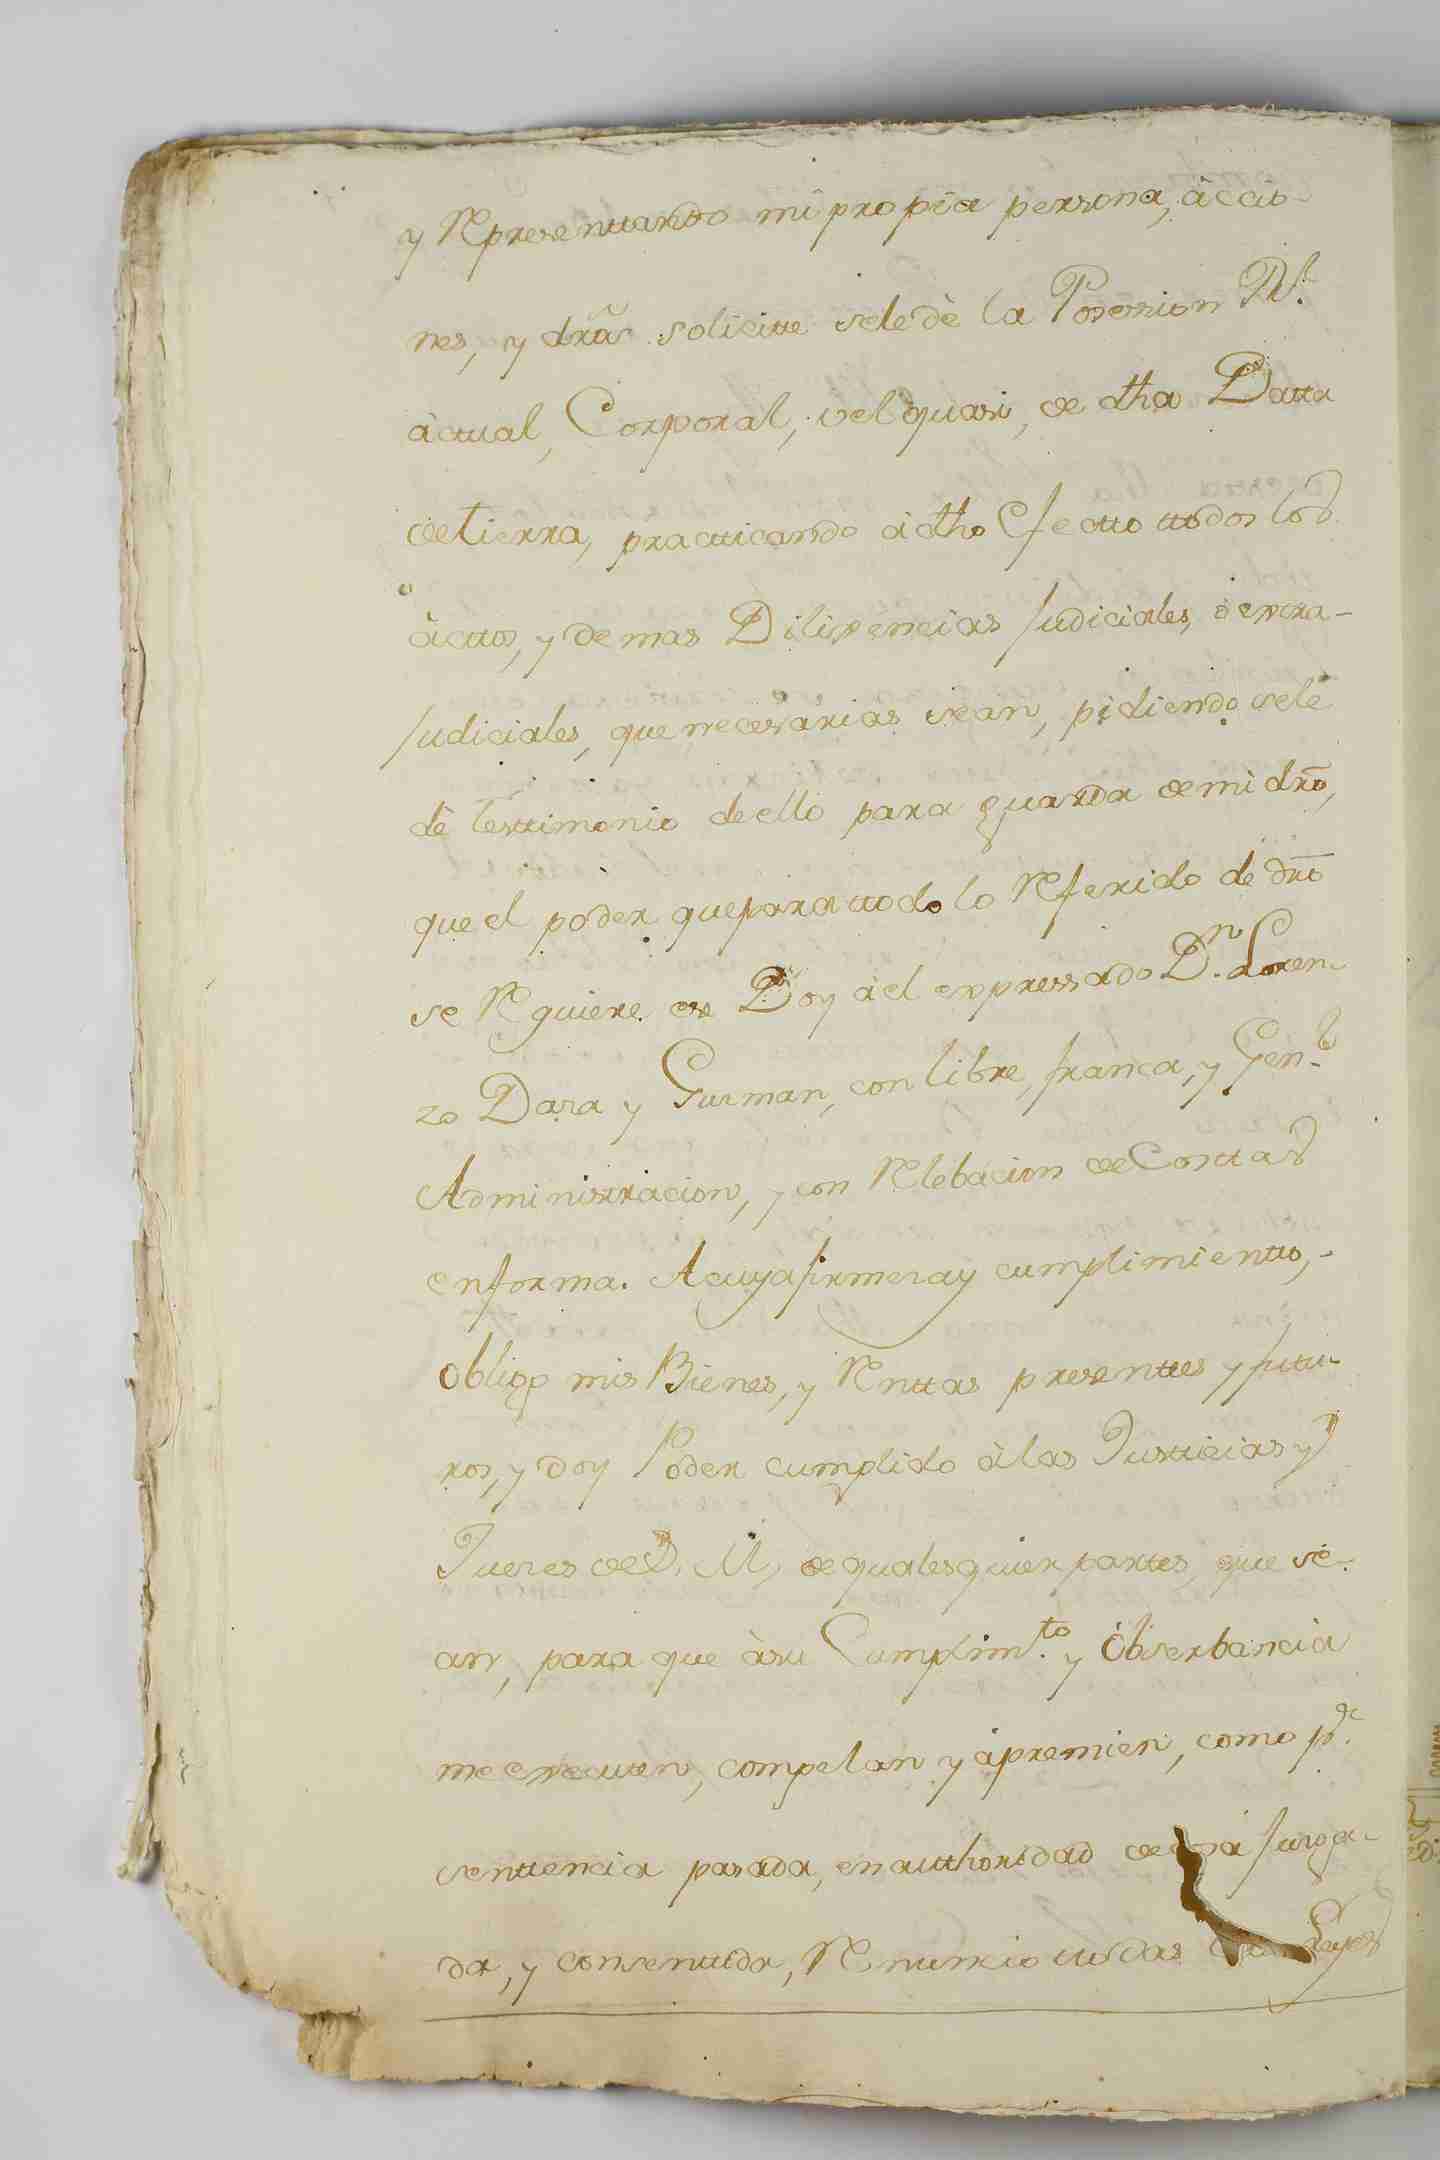 y Representtando mi propia persona, àccio-
nes, y dr̃as solicitte sele dè la Posession Rl.
àctual, Corporal, vel quasi, de dha Datta
de tierra, practticando à dho Efectto ttodos los
àcttos, y demas Diligencias Judiciales, ô extra-
Judiciales, que necesarias sean, pidiendo sele
dè testtimonio de ello para guarda de mi dr̃o,
que el poder que para ttodo lo Referido de dr̃o
se Requiere ese Doy àel expressado Dn. Loren-
zo Daza y Gusman, con libre, franca, y Genl.
Administracion, y con Relebacion de Costtas
enforma. A cuya firmeza y cumplimientto,-
Obligo mis Bienes, y Renttas presenttes y futu-
ros, y doy Poder cumplido àlas Justicias y
Jueces de S. M, de qualesquier parttes, que se-
an, para que àsu Cumplimto. y Obserbancia
me executen, compelan y àpremien, como pr.
senttencia pasada, en autthoridad de Juzga-
da, y consenttida, Renuncio ttodas Leyes